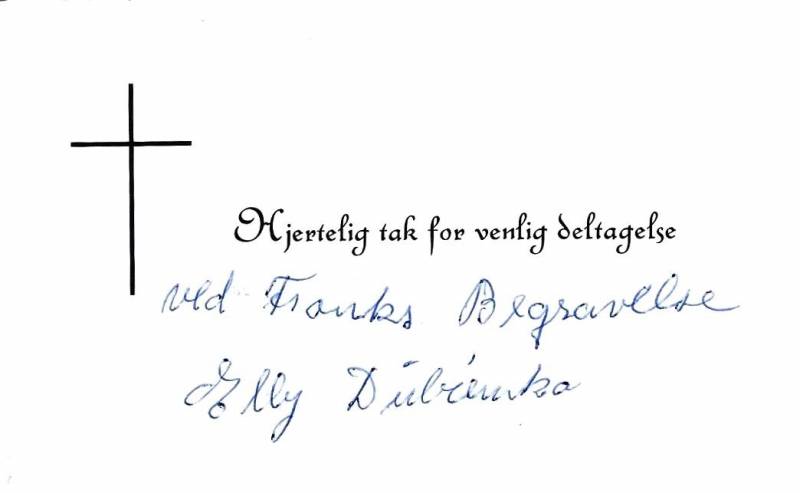 Hjertelig tak for venlig deltagelse
ved Franks Begravelse
Elly